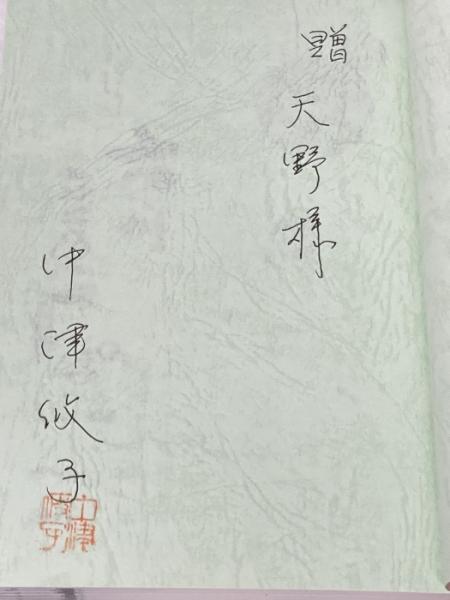 贈天野様
中津攸子
中津
攸子